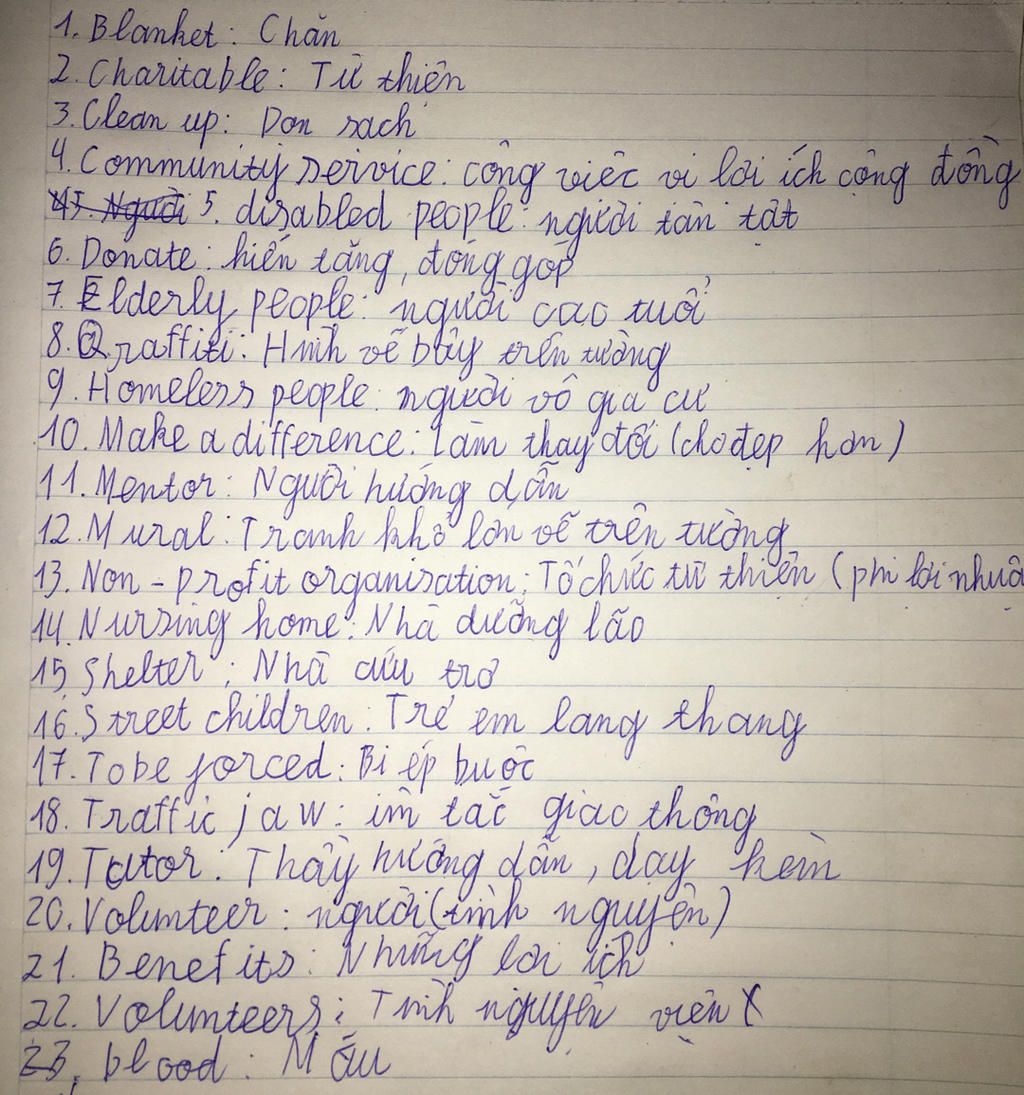 1. Blanket: Chăn
2. Charitable: Từ thiện
3. Clean up: Dọn sạch
4. Community service: công việc vì lợi ích cộng đồng
5. disabled people: người tàn tật
6. Donate: hiến tặng, đóng góp
7. Elderly people: người cao tuổi
8. Graffiti: Hình vẽ bậy trên tường
9. Homeless people: người vô gia cư
10. Make a difference: Làm thay đổi (cho đẹp hơn)
11. Mentor: Người hướng dẫn
12. Mural: Tranh khổ lớn vẽ trên tường
13. Non-profit organisation: Tổ chức từ thiện (phi lợi nhuậ
14. Nursing home: Nhà dưỡng lão
15, Shelter: Nhà cứu trợ
16. Street children: Trẻ em lang thang
17. To be forced: Bị ép buộc
18. Traffic jaw: ùn tắc giao thông
19. Tutor: Thầy hướng dẫn, dạy kèm
20. Volunteer: người (tình nguyện)
21. Benefits: Những lợi ích
22. Volunteers: Tình nguyện viên
23, blood: Máu